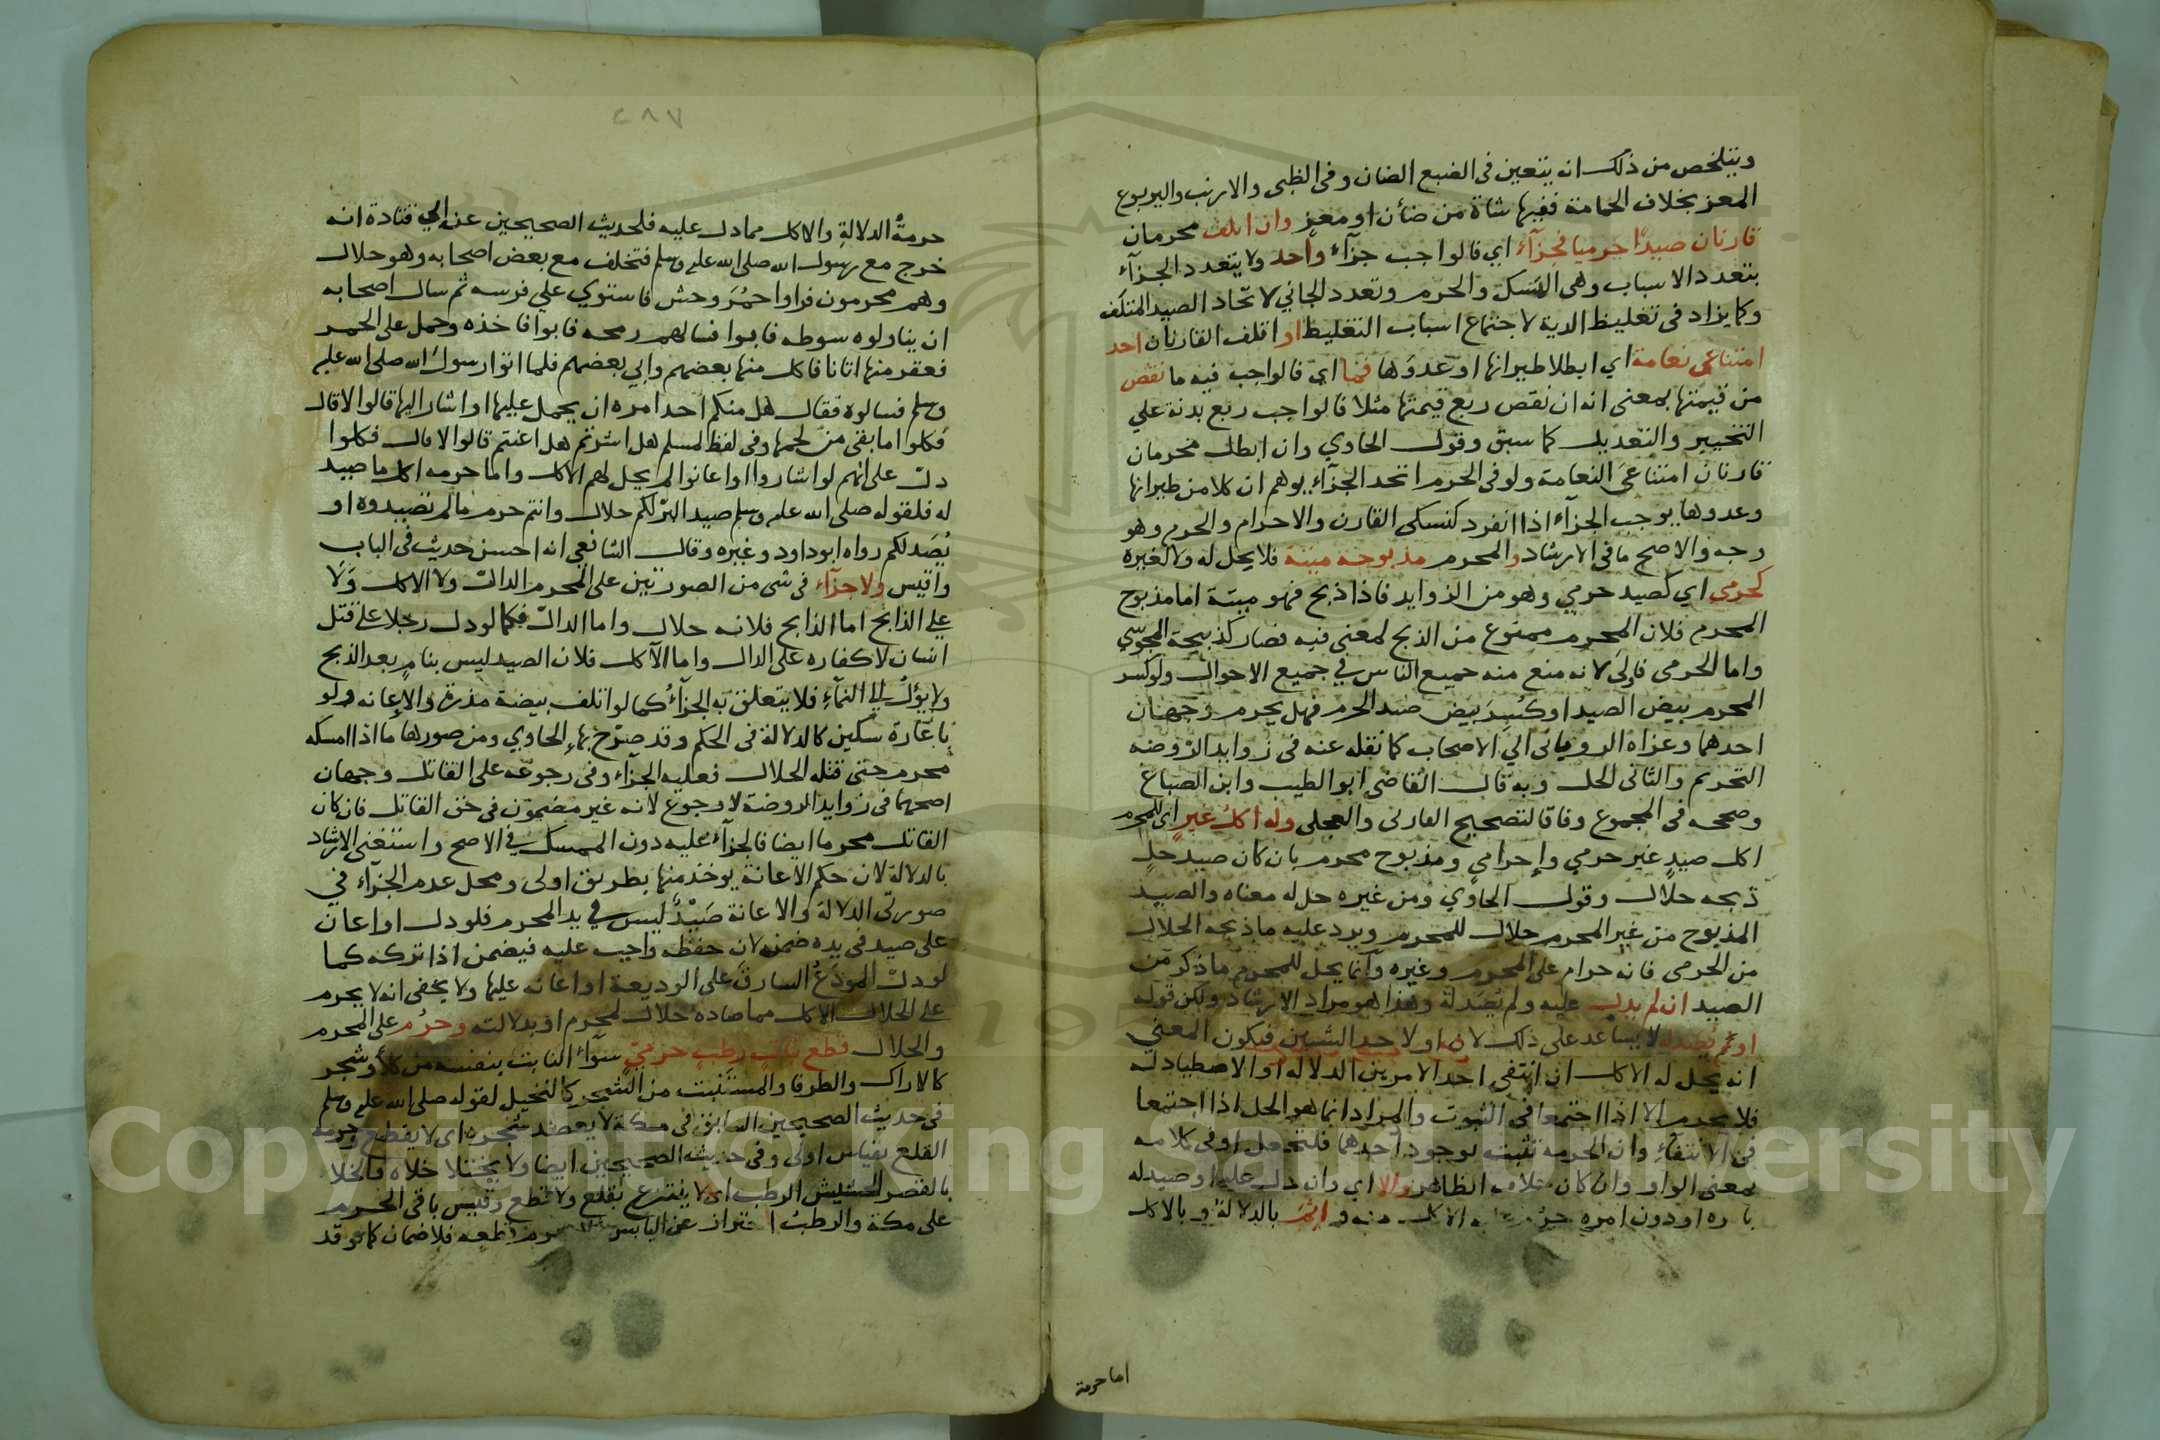 ويتلخص من ذلك انه يتعين في الضبع الضان وفي الظبي والارنب واليربوع
المعز بخلاف الحمامة ففيها شاة من ضأن او معز وان اتلف محرمان
قارنان صيدًا حرميا فجزآء اي فالواجب جزآء واحد ولا يتعدد الجزآء
بتعدد الاسباب وهي النسك والحرم وتعدد الجاني لاتحاد الصيد المتلف
وكما يزاد في تغليظ الدية لاجتماع اسباب التغليظ او اتلف القارنان احد
امتناعي نعامة اي ابطلا طيرانها او عدوها فما اي فالواجب فيه ما نقص
من قيمتها بمعنى انه ان نقص ربع قيمتها مثلا فالواجب ربع بدنة علي
التخيير والتعديل كما سبق وقول الحاوي وان ابطل محرمان
قارنان امتناعي النعامة ولو في الحرم اتحد الجزآء يوهم ان كلا من طيرانها
وعدوها يوجب الجزآء اذا انفرد كنسكي القارن والاحرام والحرم وهو
وجه والاصح ما في الارشاد والمحرم مذبوحه ميتة فلا يحل له ولا لغيره
كحرمي اي كصيد حرمي وهو من الزوايد فاذا ذبح فهو ميتة اما مذبوح
المحرم فلان المحرم ممنوع من الذبح لمعنى فيه فصار كذبيحة المجوسي
واما الحرمي فاولى لانه منع منه جميع الناس في جميع الاحوال ولو كسر
المحرم بيض الصيد او كسر بيض صيد الحرم فهل يحرم وجهان
احدهما وعزاه الروياني الي الاصحاب كما نقله عنه في زوايد الروضه
التحريم والثاني الحل وبه قال القاضي ابو الطيب وابن الصباغ
وصححه في المجموع وفاقا لتصحيح الفارقي والعجلي وله اكل غير اي للمحرم
اكل صيد غير حرمي وإحرامي ومذبوح محرم بان كان صيد حل
ذبحه حلال وقول الحاوي ومن غيره حل له معناه والصيد
المذبوح من غير المحرم حلال للمحرم ويرد عليه ما ذبحه الحلال
من الحرمي فانه حرام على المحرم وغيره وانما يحل للمحرم ما ذكر من
الصيد ان لم يدل عليه ولم يصد له وهذا هو مراد الارشاد ولكن قوله
او لم يصد له لا يساعد على ذلك لان او لاحد الشيين فيكون المعني
انه يحل له الاكل ان انتفي احد الامرين الدلاله او الاصطياد له
فلا يحرم الا اذا اجتمعا في الثبوت والمراد انما هو الحل اذا اجتمعا
في الانتفاء وان الحرمة تثبت بوجود احدهما فلتجعل او في كلامه
بمعنى الواو وان كان خلاف الظاهر والا اي وان دل عليه او صيد له
بامره او دون امره حرم عليه الاكل منه واثم بالدلالة وبالاكل
اما حرمة
٢٨٧
حرمة الدلالة والاكل مما دل عليه فلحديث الصحيحين عن ابي قتادة انه
خرج مع رسول الله صلى الله عليه وسلم فتخلف مع بعض اصحابه وهو حلال
وهم محرمون فراوا حمر وحش فاستوي علي فرسه ثم سال اصحابه
ان يناولوه سوطه فابوا فسالهم رمحه فابوا فاخذه وحمل على الحمر
فعقر منها اتانا فاكل منها بعضهم وابي بعضهم فلما اتوا رسول الله صلى الله عليه
وسلم فسالوه فقال هل منكم احد امره ان يحمل عليها او اشار اليها قالوا لا قال
فكلوا ما بقي من لحمها وفي لفظ لمسلم هل اشرتم هل اعنتم قالوا لا قال فكلوا
دل على انهم لو اشاروا او اعانوا لم يحل لهم الاكل واما حرمه اكل ما صيد
له فلقوله صلى الله عليه وسلم صيد البر لكم حلال وانتم حرم ما لم تصيدوه او
يُصَد لكم رواه ابو داود وغيره وقال الشافعي انه احسن حديث في الباب
واقيس ولا جزآء في شي من الصورتين على المحرم الدال ولا الاكل ولا
علي الذابح اما الذابح فلانه حلال واما الدال فكما لو دل رجلا على قتل
انسان لا كفاره على الدال واما الآكل فلان الصيد ليس بنام بعد الذبح
ولا يؤل الي النماء فلا يتعلق به الجزآء كما لو اتلف بيضة مذرة والاعانه ولو
باعارة سكين كالدلالة في الحكم وقد صرح بها الحاوي ومن صورها ما اذا امسكه
محرم حتى قتله الحلال فعليه الجزآء وفي رجوعه على القاتل وجهان
اصحهما في زوايد الروضة لا رجوع لانه غير مضمون في حق القاتل فان كان
القاتل محرما ايضا فالجزآء عليه دون الممسك في الاصح واستغنى الارشاد
بالدلالة لان حكم الاعانة يوخذ منها بطريق اولى ومحل عدم الجزآء في
صورتي الدلالة والاعانة صَيْدٌ ليس في يد المحرم فلو دل او اعان
على صيد في يده ضمنه لان حفظه واجب عليه فيضمن اذا تركه كما
لو دل المودَع السارق على الوديعة او اعانه عليها ولا يخفى انه لا يحرم
علي الحلال الاكل مما صاده حلال لمحرم او بدلالته وحرم على المحرم
والحلال قطع نابت رطب حرمي سوآء النابت بنفسه من كلأ وشجر
كالاراك والطرفا والمستنبت من الشجر كالنخيل لقوله صلى الله عليه وسلم
في حديث الصحيحين السابق في مكة لا يعضد شجره اي لا يقطع وحرمة
القلع بقياس اولى وفي حديث الصحيحين ايضا ولا يختلا خلاه والخلا
بالقصر الحشيش الرطب اي لا ينتزع بقلع ولا قطع وقيس باقي الحرم
على مكة والرطب احتراز عن اليابس قطعه فلا ضمان كما لو قد